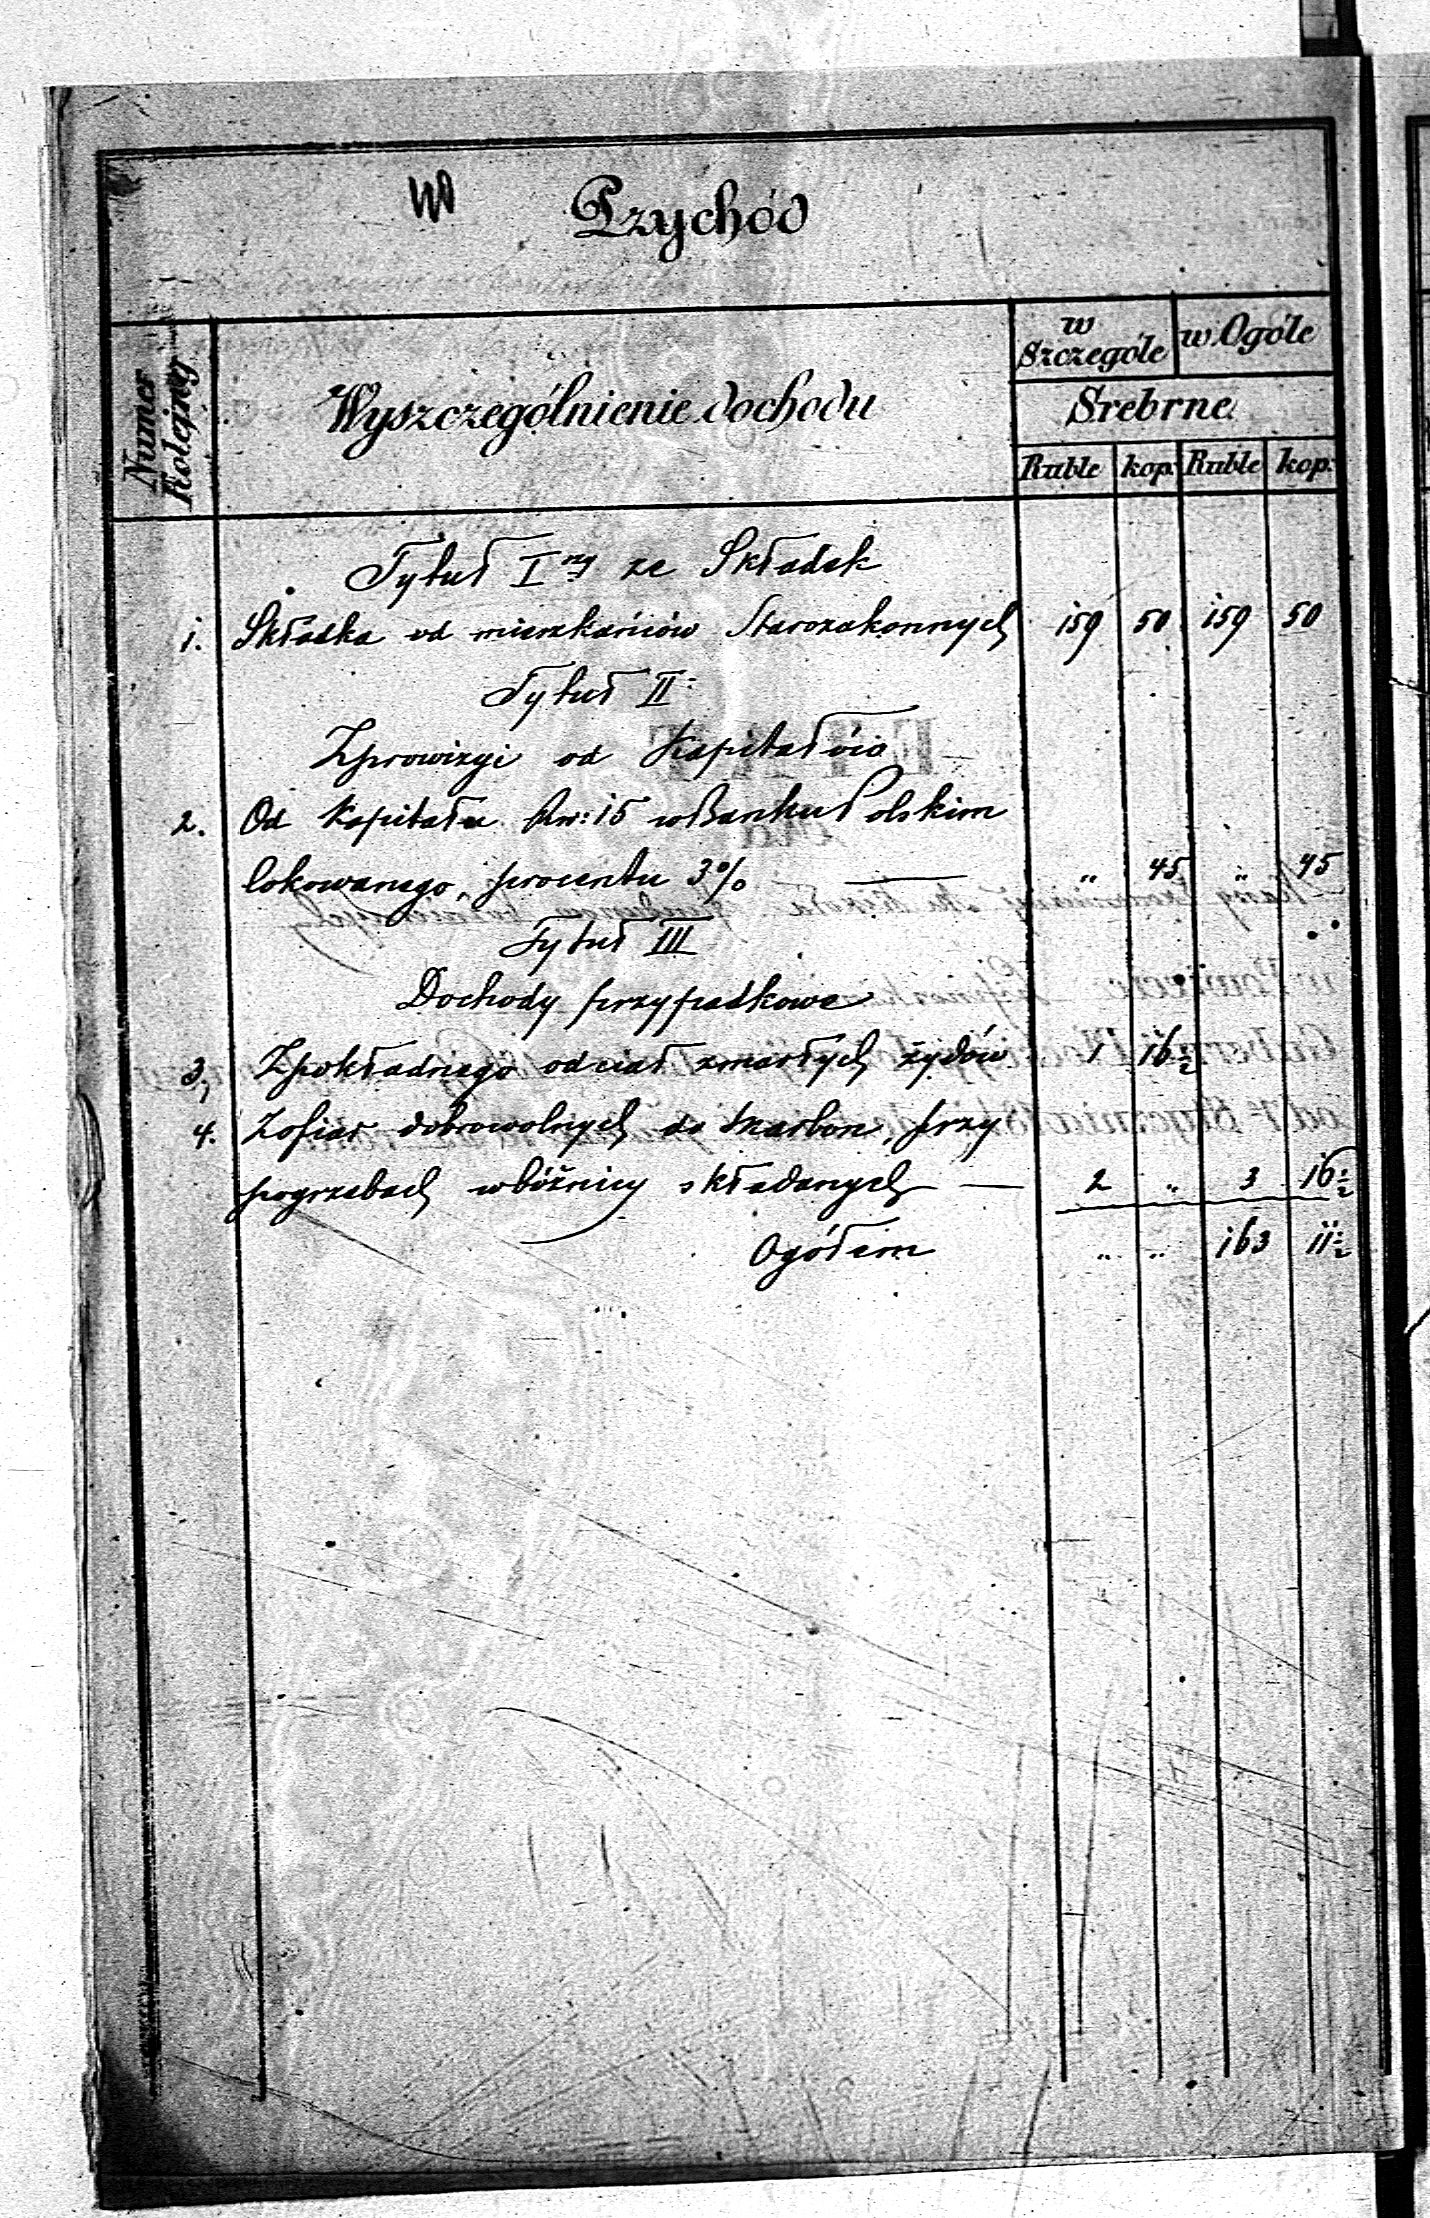 Przychód
Numer Kolejny
Wyszczególnienie dochodu
w Szczególe
w Ogóle
Srebrne
Ruble kop: Ruble kop:
Tytuł I ny ze Składek
1. Składka od mieszkańców Starozakonnych 159 50 159 50
Tytuł II:
Zprowizyi od Kapitałów
2. Od Kapitału Rs: 15 w Banku Polskim
lokowanego, procentu 3% — „ 45 „ 45
Tytuł III
Dochody przypadkowe
3, Zpokładnego od ciał zmarłych żydów 1 16½
4. Zofiar dobrowolnych do skarbon, przy
pogrzebach w bóżnicy składanych — 2 „ 3 16½
Ogółem „ „ 163 11½